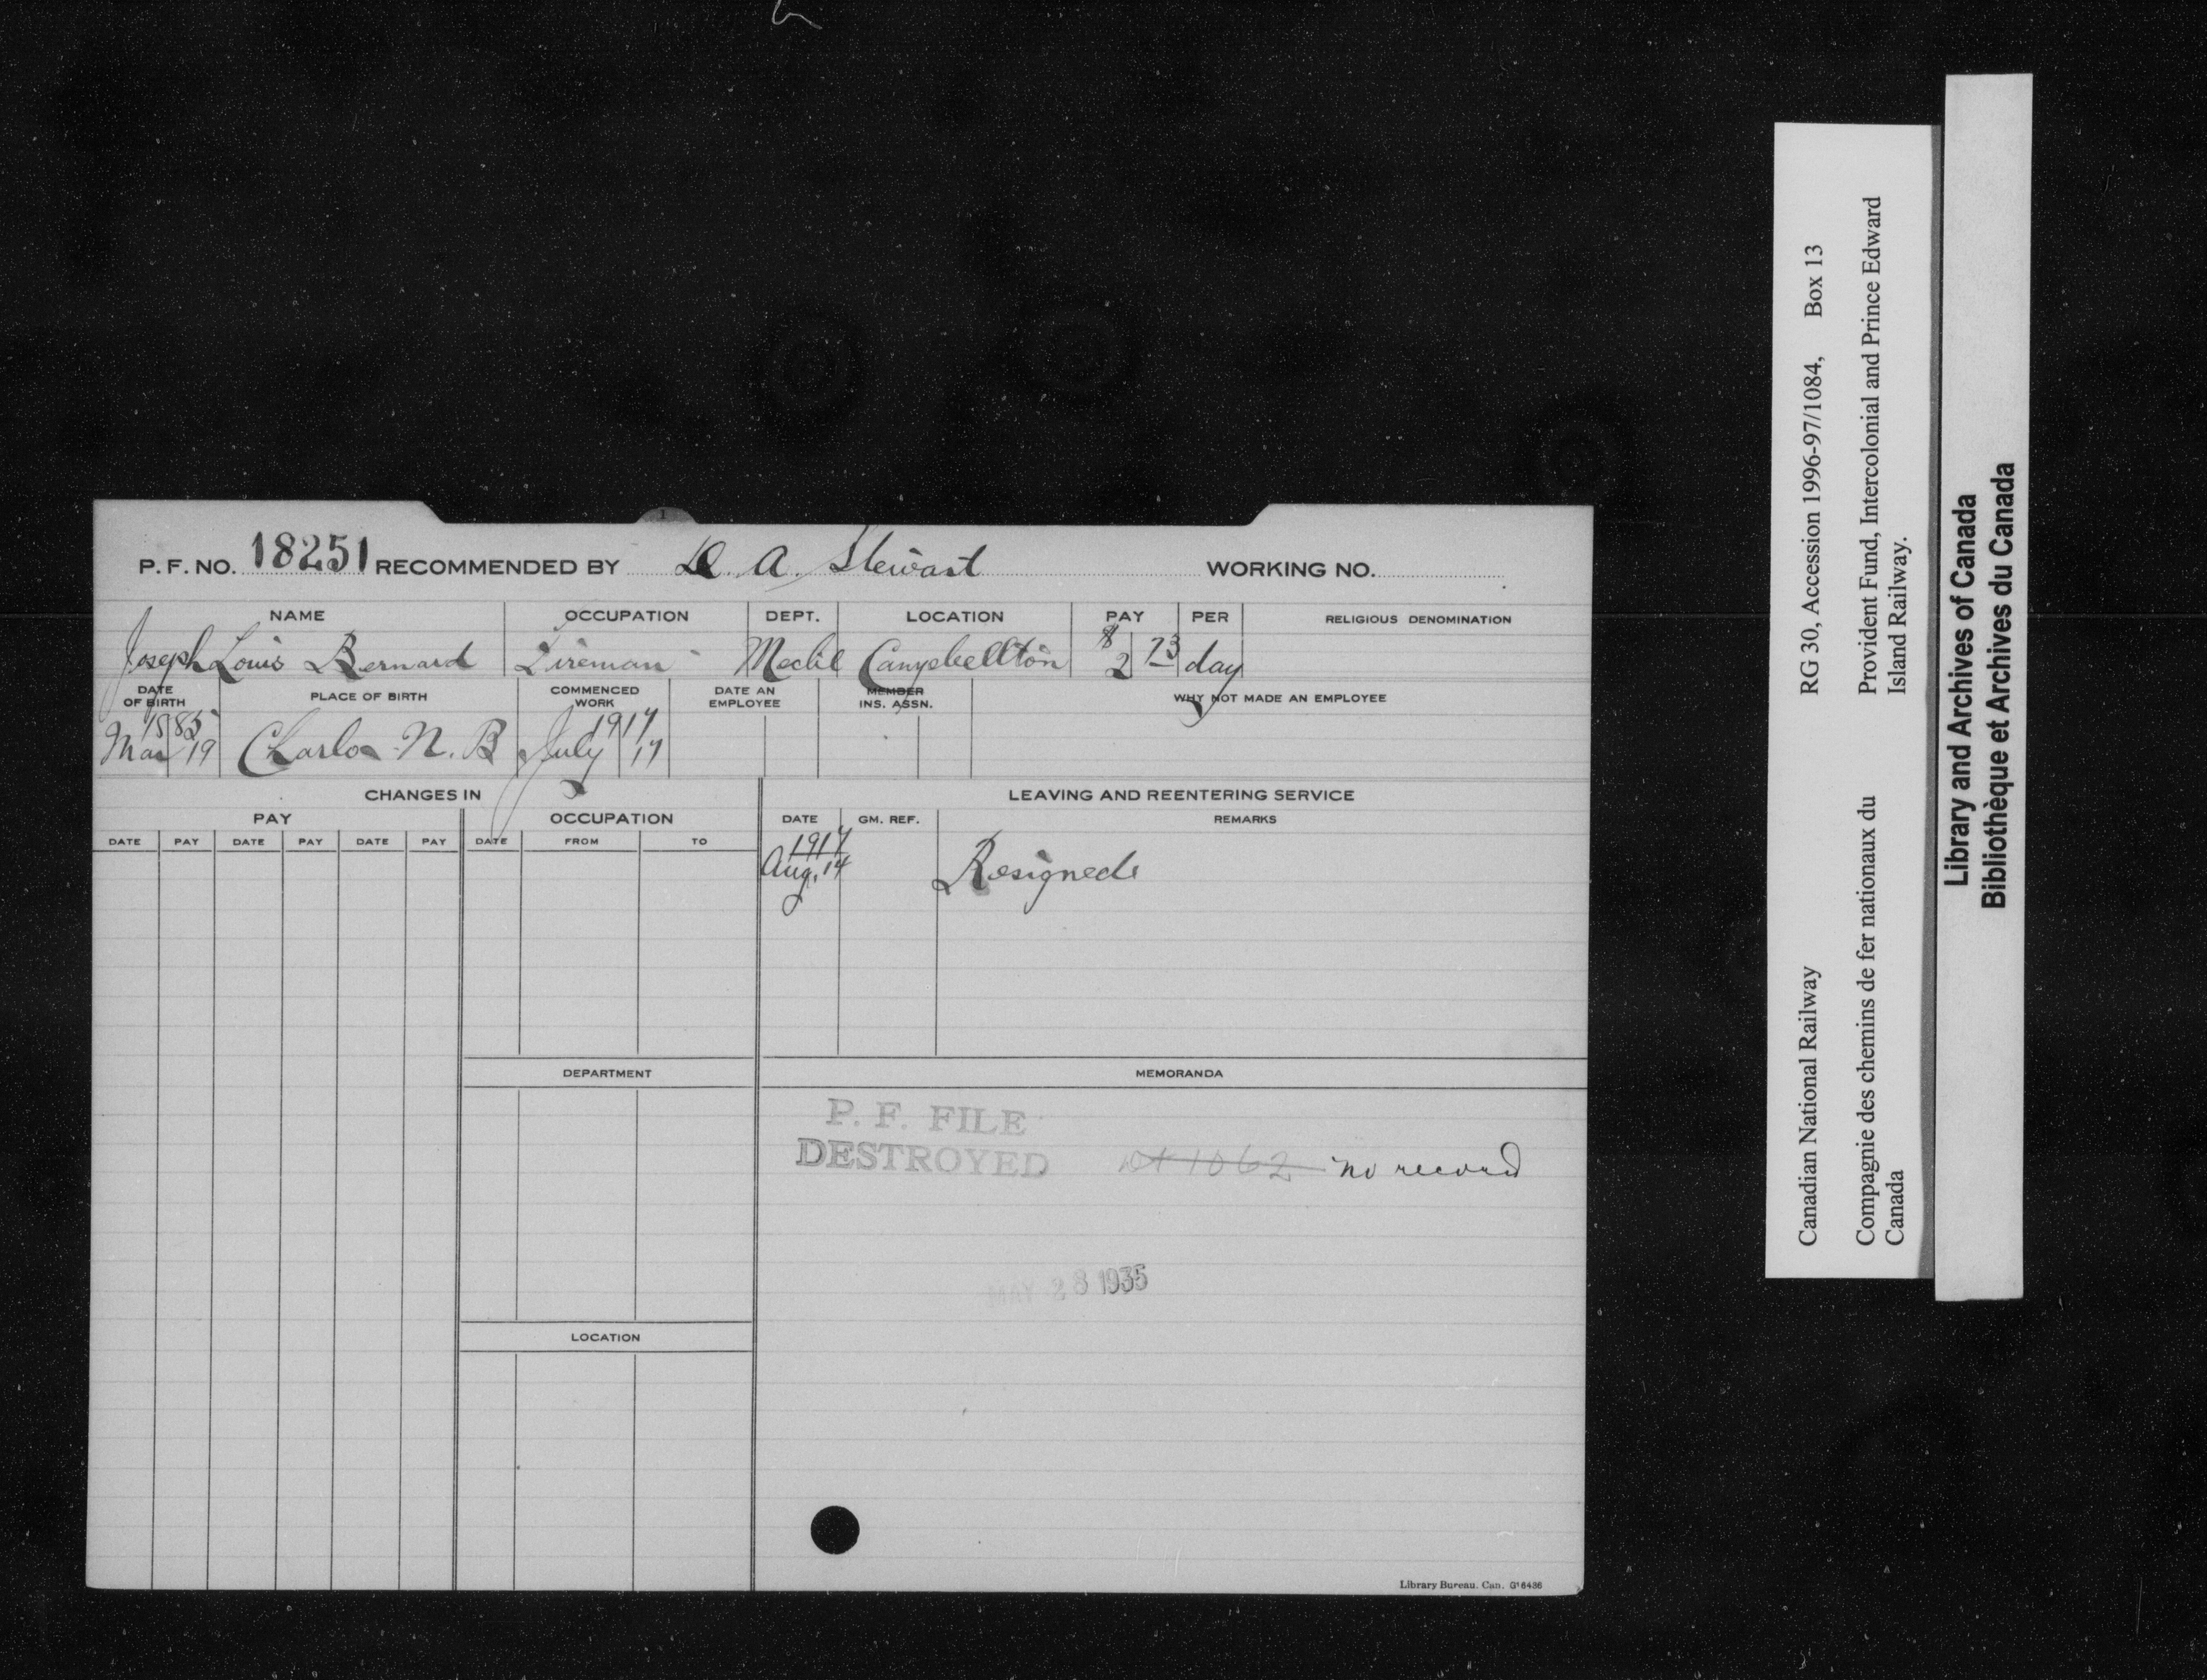 P.F. NO. 18251 RECOMMENDED BY D. A. Stewart WORKING NO.
NAME OCCUPATION DEPT. LOCATION PAY PER RELIGIOUS DENOMINATION
Joseph Louis Bernard Fireman Mechl Campbellton $2 73 day
DATE OF BIRTH PLACE OF BIRTH COMMENCED WORK DATE AN EMPLOYEE MEMBER INS. ASSN. WHY NOT MADE AN EMPLOYEE
1885 1917
Mar 19 Charlo N.B July 17
CHANGES IN LEAVING AND REENTERING SERVICE
PAY OCCUPATION DATE GM. REF. REMARKS
DATE PAY DATE PAY DATE PAY DATE FROM TO
1917
Aug. 14 Resigned
DEPARTMENT MEMORANDA
P. F. FILE
DESTROYED 1062 no record
MAY 28 1935
LOCATION
Library Bureau. Can. G16436
Canadian National Railway RG 30, Accession 1996-97/1084, Box 13
Compagnie des chemins de fer nationaux du Canada
Provident Fund, Intercolonial and Prince Edward Island Railway.
Library and Archives of Canada
Bibliothèque et Archives du Canada